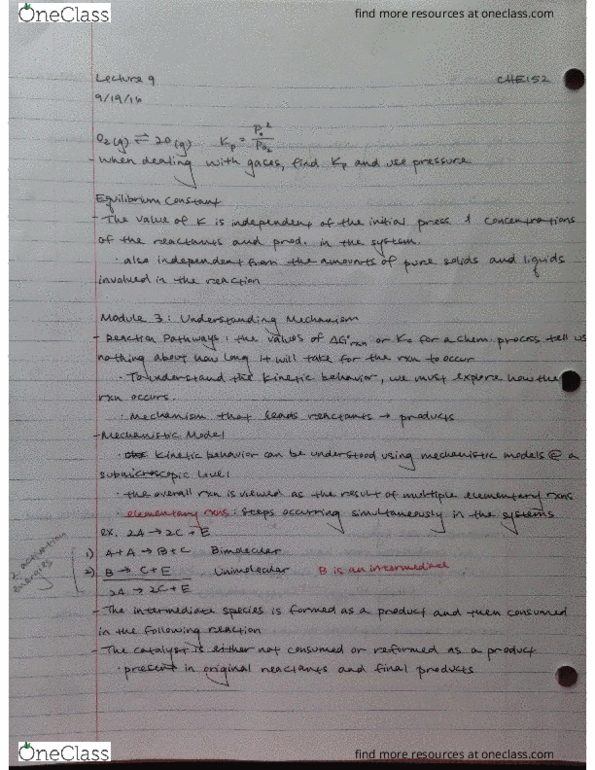 OneClass
find more resources at oneclass.com
Lecture 9
CHE152
9/19/16
O₂(g) ⇌ 2O(g) Kp = Po² / Po₂
- When dealing with gases, find Kp and use pressure
Equilibrium Constant
- The value of K is independent of the initial press. & concentrations
of the reactants and prod. in the system.
· also independent from the amounts of pure solids and liquids
involved in the reaction
Module 3: Understanding Mechanism
- Reaction Pathways: the values of ΔG°rxn or K for a chem. process tell us
nothing about how long it will take for the rxn to occur
· To understand the kinetic behavior, we must explore how the
rxn occurs.
· Mechanism that leads reactants → products
- Mechanistic Model
· Kinetic behavior can be understood using mechanistic models @ a
submicroscopic level
· the overall rxn is viewed as the result of multiple elementary rxns
· elementary rxns: steps occurring simultaneously in the systems
ex. 2A → 2C + E
2 activation energies
1) A + A → B + C Bimolecular
2) B → C + E Unimolecular B is an intermediate
2A → 2C + E
- The intermediate species is formed as a product and then consumed
in the following reaction
- The catalyst is either not consumed or reformed as a product
· present in original reactants and final products
OneClass
find more resources at oneclass.com